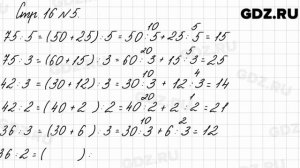 Стр. 16 №5. GDZ.RU
10 5
75:5=(50+25):5=50:5+25:5=15
20 5
75:3=(60+15):3=60:3+15:3=25
10 4
42:3=(30+12):3=30:3+12:3=14
20 1
42:2=(40+2):2=40:2+2:2=21
10 2
36:3=(30+6):3=30:3+6:3=12
36:2=( ):
GDZ.RU